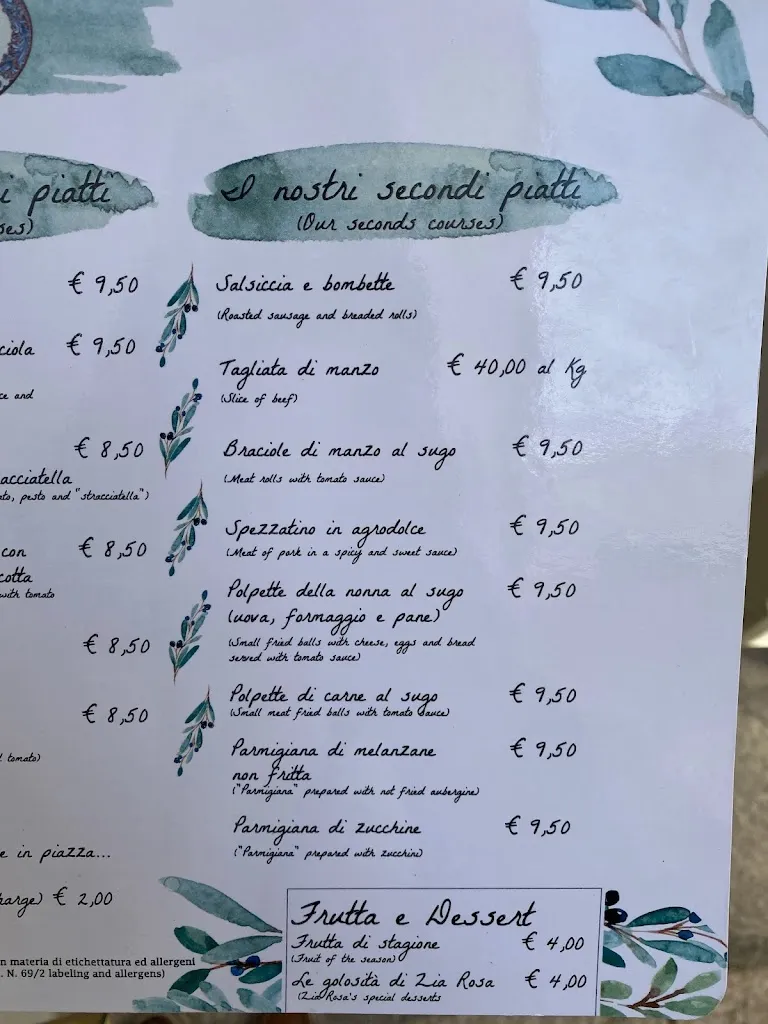 i piatti
ses)
€ 9,50
ciola € 9,50
ce and
€ 8,50
acciatella
ato, pesto and "stracciatella")
con € 8,50
cotta
with tomato
€ 8,50
€ 8,50
tomato)
e in piazza...
harge) € 2,00
n materia di etichettatura ed allergeni
. N. 69/2 labeling and allergens)
I nostri secondi piatti
(Our seconds courses)
Salsiccia e bombette € 9,50
(Roasted sausage and breaded rolls)
Tagliata di manzo € 40,00 al Kg
(Slice of beef)
Braciole di manzo al sugo € 9,50
(Meat rolls with tomato sauce)
Spezzatino in agrodolce € 9,50
(Meat of pork in a spicy and sweet sauce)
Polpette della nonna al sugo € 9,50
(uova, formaggio e pane)
(Small fried balls with cheese, eggs and bread
served with tomato sauce)
Polpette di carne al sugo € 9,50
(Small meat fried balls with tomato sauce)
Parmigiana di melanzane € 9,50
non fritta
("Parmigiana" prepared with not fried aubergine)
Parmigiana di zucchine € 9,50
("Parmigiana" prepared with zucchini)
Frutta e Dessert
Frutta di stagione € 4,00
(Fruit of the season)
Le golosità di Zia Rosa € 4,00
(Zia Rosa's special desserts